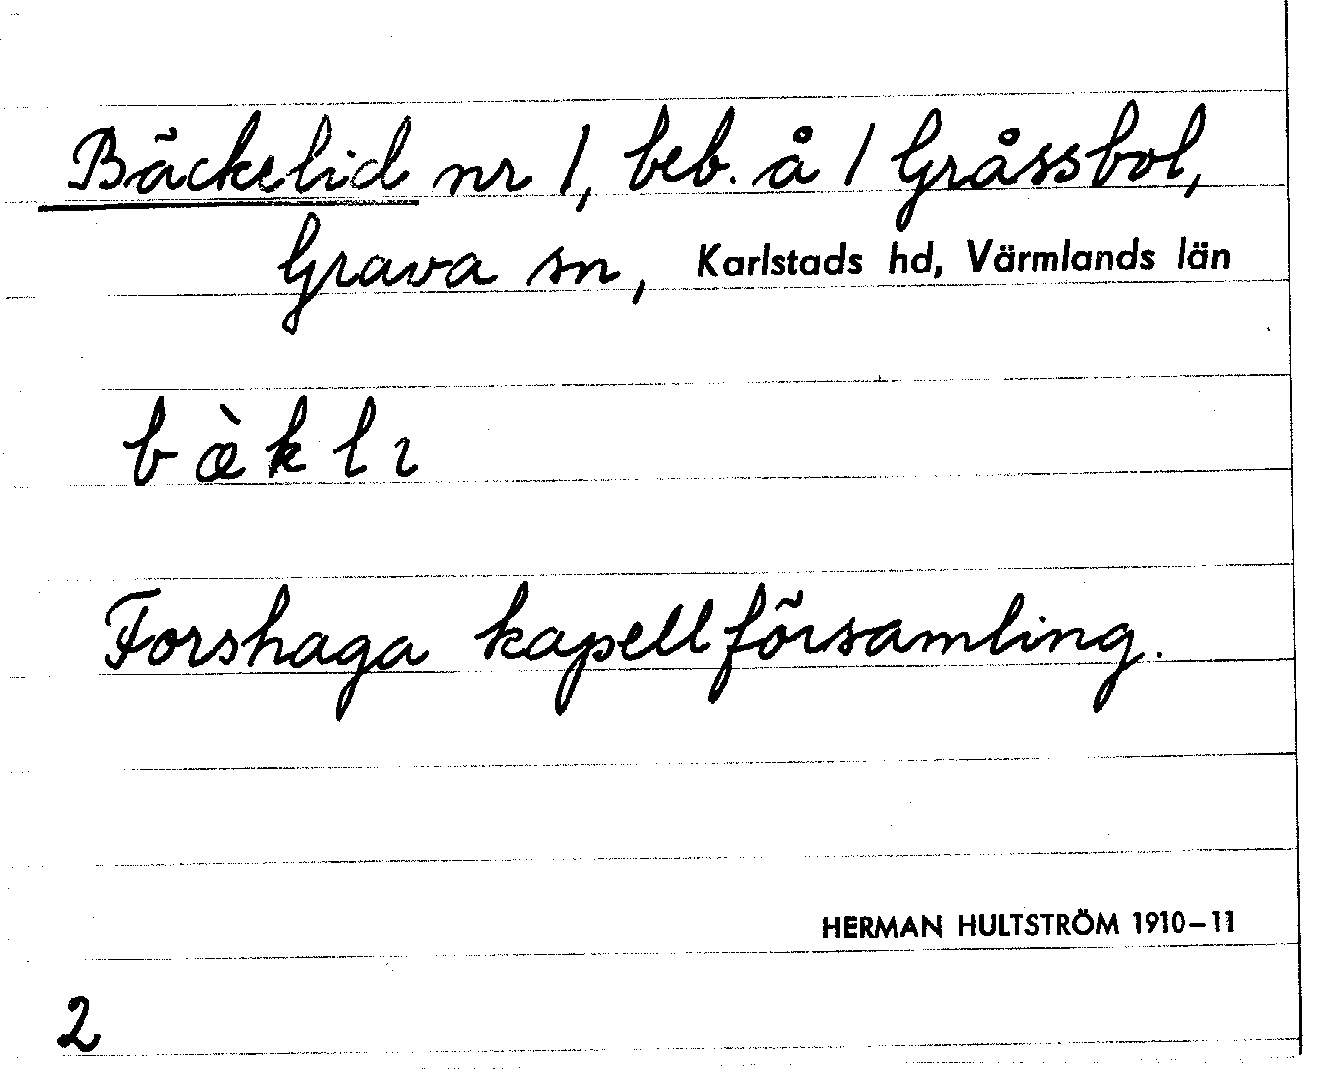 Bäckelid nr 1, beb. å 1 Gråssbol,
Grava sn, Karlstads hd, Värmlands län
bæ̀klɩ
Forshaga kapellförsamling.
HERMAN HULTSTRÖM 1910–11
2